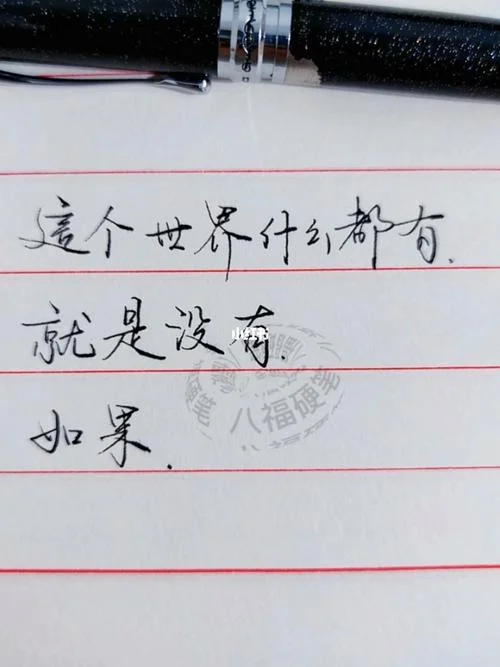 這个世界什么都有.
就是没有.
小红书
八福硬笔
如果.